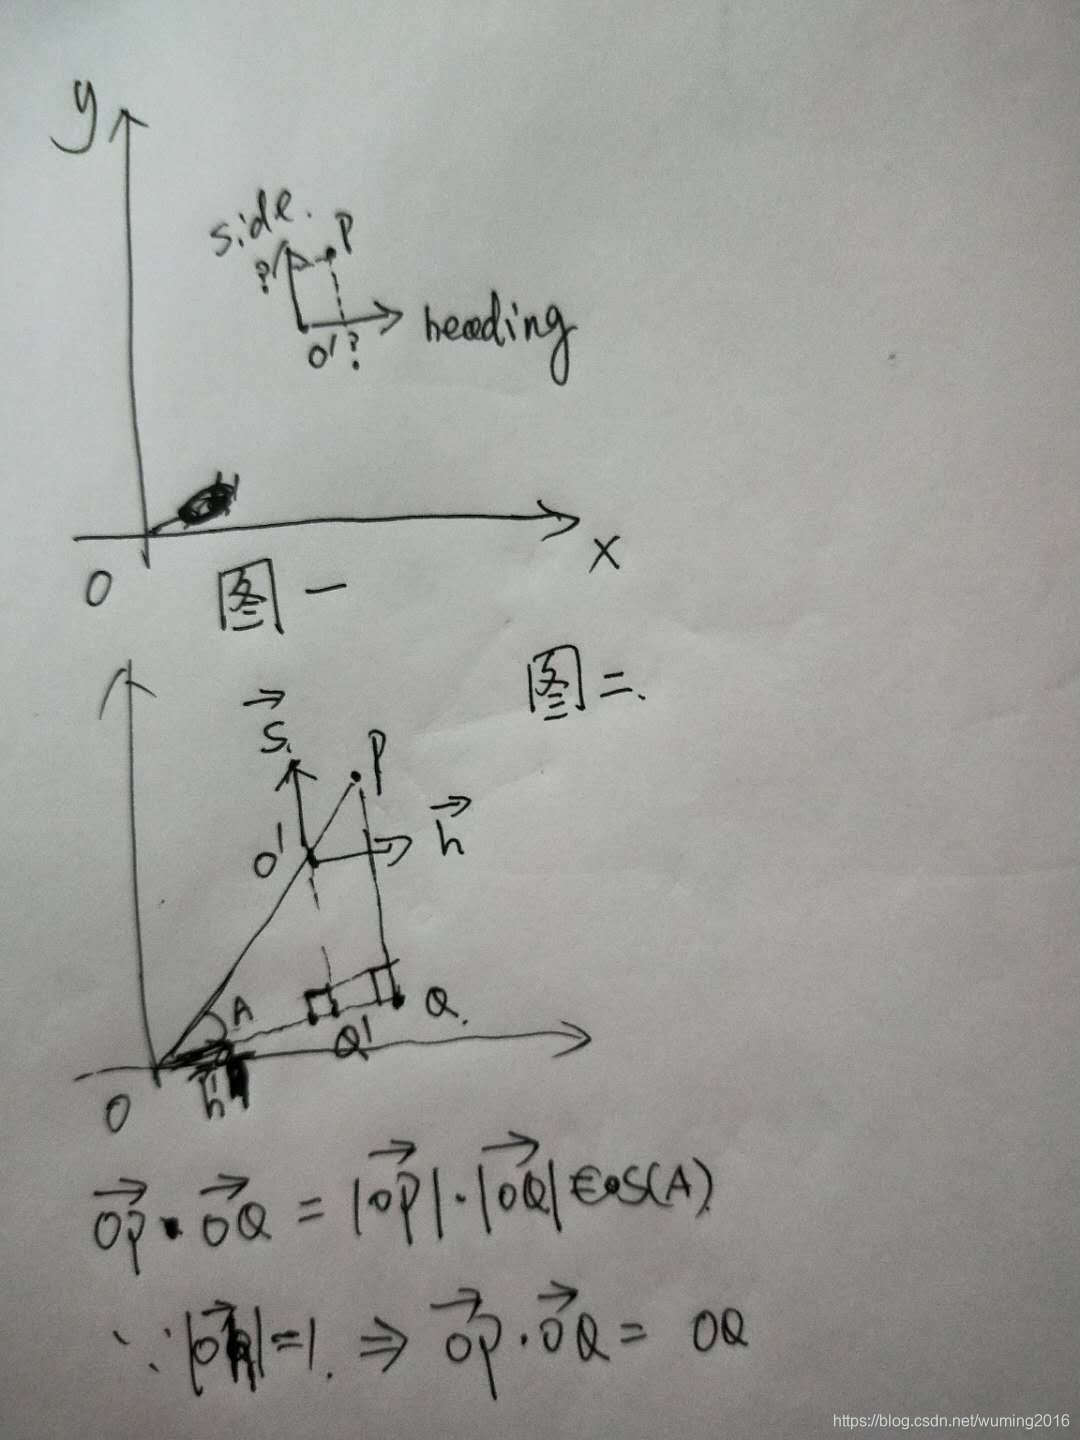 y
side.
P
?
O'?
heading
O
x
图一
图二.
S.
P
O'
h
A
Q.
Q'
h
O
OP · OQ = |OP| · |OQ| cos(A)
∵ |Oh| = 1. ⇒ OP · OQ = OQ
https://blog.csdn.net/wuming2016